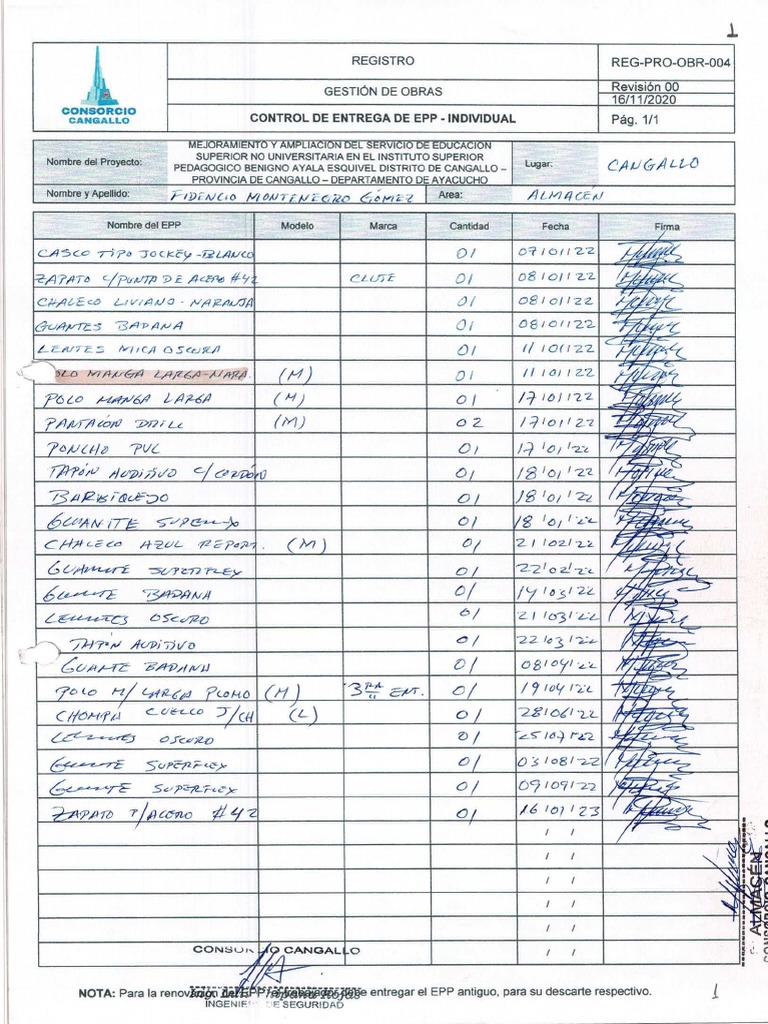 1
CONSORCIO
CANGALLO
REGISTRO
REG-PRO-OBR-004
GESTIÓN DE OBRAS
Revisión 00
16/11/2020
CONTROL DE ENTREGA DE EPP - INDIVIDUAL
Pág. 1/1
Nombre del Proyecto:
MEJORAMIENTO Y AMPLIACION DEL SERVICIO DE EDUCACION
SUPERIOR NO UNIVERSITARIA EN EL INSTITUTO SUPERIOR
PEDAGOGICO BENIGNO AYALA ESQUIVEL DISTRITO DE CANGALLO –
PROVINCIA DE CANGALLO – DEPARTAMENTO DE AYACUCHO
Lugar: CANGALLO
Nombre y Apellido: FIDENCIO MONTENEGRO GÓMEZ Area: ALMACEN
Nombre del EPP Modelo Marca Cantidad Fecha Firma
CASCO TIPO JOCKEY-BLANCO 01 07/01/22
ZAPATO C/PUNTA DE ACERO #42 CLUTE 01 08/01/22
CHALECO LIVIANO - NARANJA 01 08/01/22
GUANTES BADANA 01 08/01/22
LENTES MICA OSCURA 01 11/01/22
OLO MANGA LARGA-NARA. (M) 01 11/01/22
POLO MANGA LARGA (M) 01 17/01/22
PANTALON DRILL (M) 02 17/01/22
PONCHO PVC 01 17/01/22
TAPÓN AUDITIVO C/CORDÓN 01 18/01/22
BARBIQUEJO 01 18/01/22
GUANTE SUPERFLEX 01 18/01/22
CHALECO AZUL REPORT. (M) 01 21/02/22
GUANTE SUPERFLEX 01 22/02/22
GUANTE BADANA 01 14/03/22
LENTES OSCURO 01 21/03/22
TAPÓN AUDITIVO 01 22/03/22
GUANTE BADANA 01 08/04/22
POLO M/LARGA PLOMO (M) 3RA ENT. 01 19/04/22
CHOMPA CUELLO J/CH (L) 01 28/06/22
LENTES OSCURO 01 25/07/22
GUANTE SUPERFLEX 01 03/08/22
GUANTE SUPERFLEX 01 09/09/22
ZAPATO P/ACERO #42 01 16/01/23
/ /
/ /
/ /
/ /
/ /
/ /
CONSORCIO CANGALLO
NOTA: Para la renovación del EPP entregar el EPP antiguo, para su descarte respectivo.
INGENIERO DE SEGURIDAD
1
ALMACÉN
CONSORCIO CANGALLO